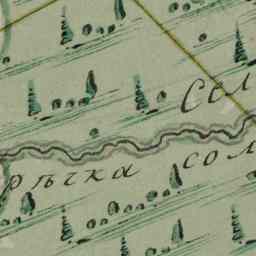 Сол
рѣчка сол